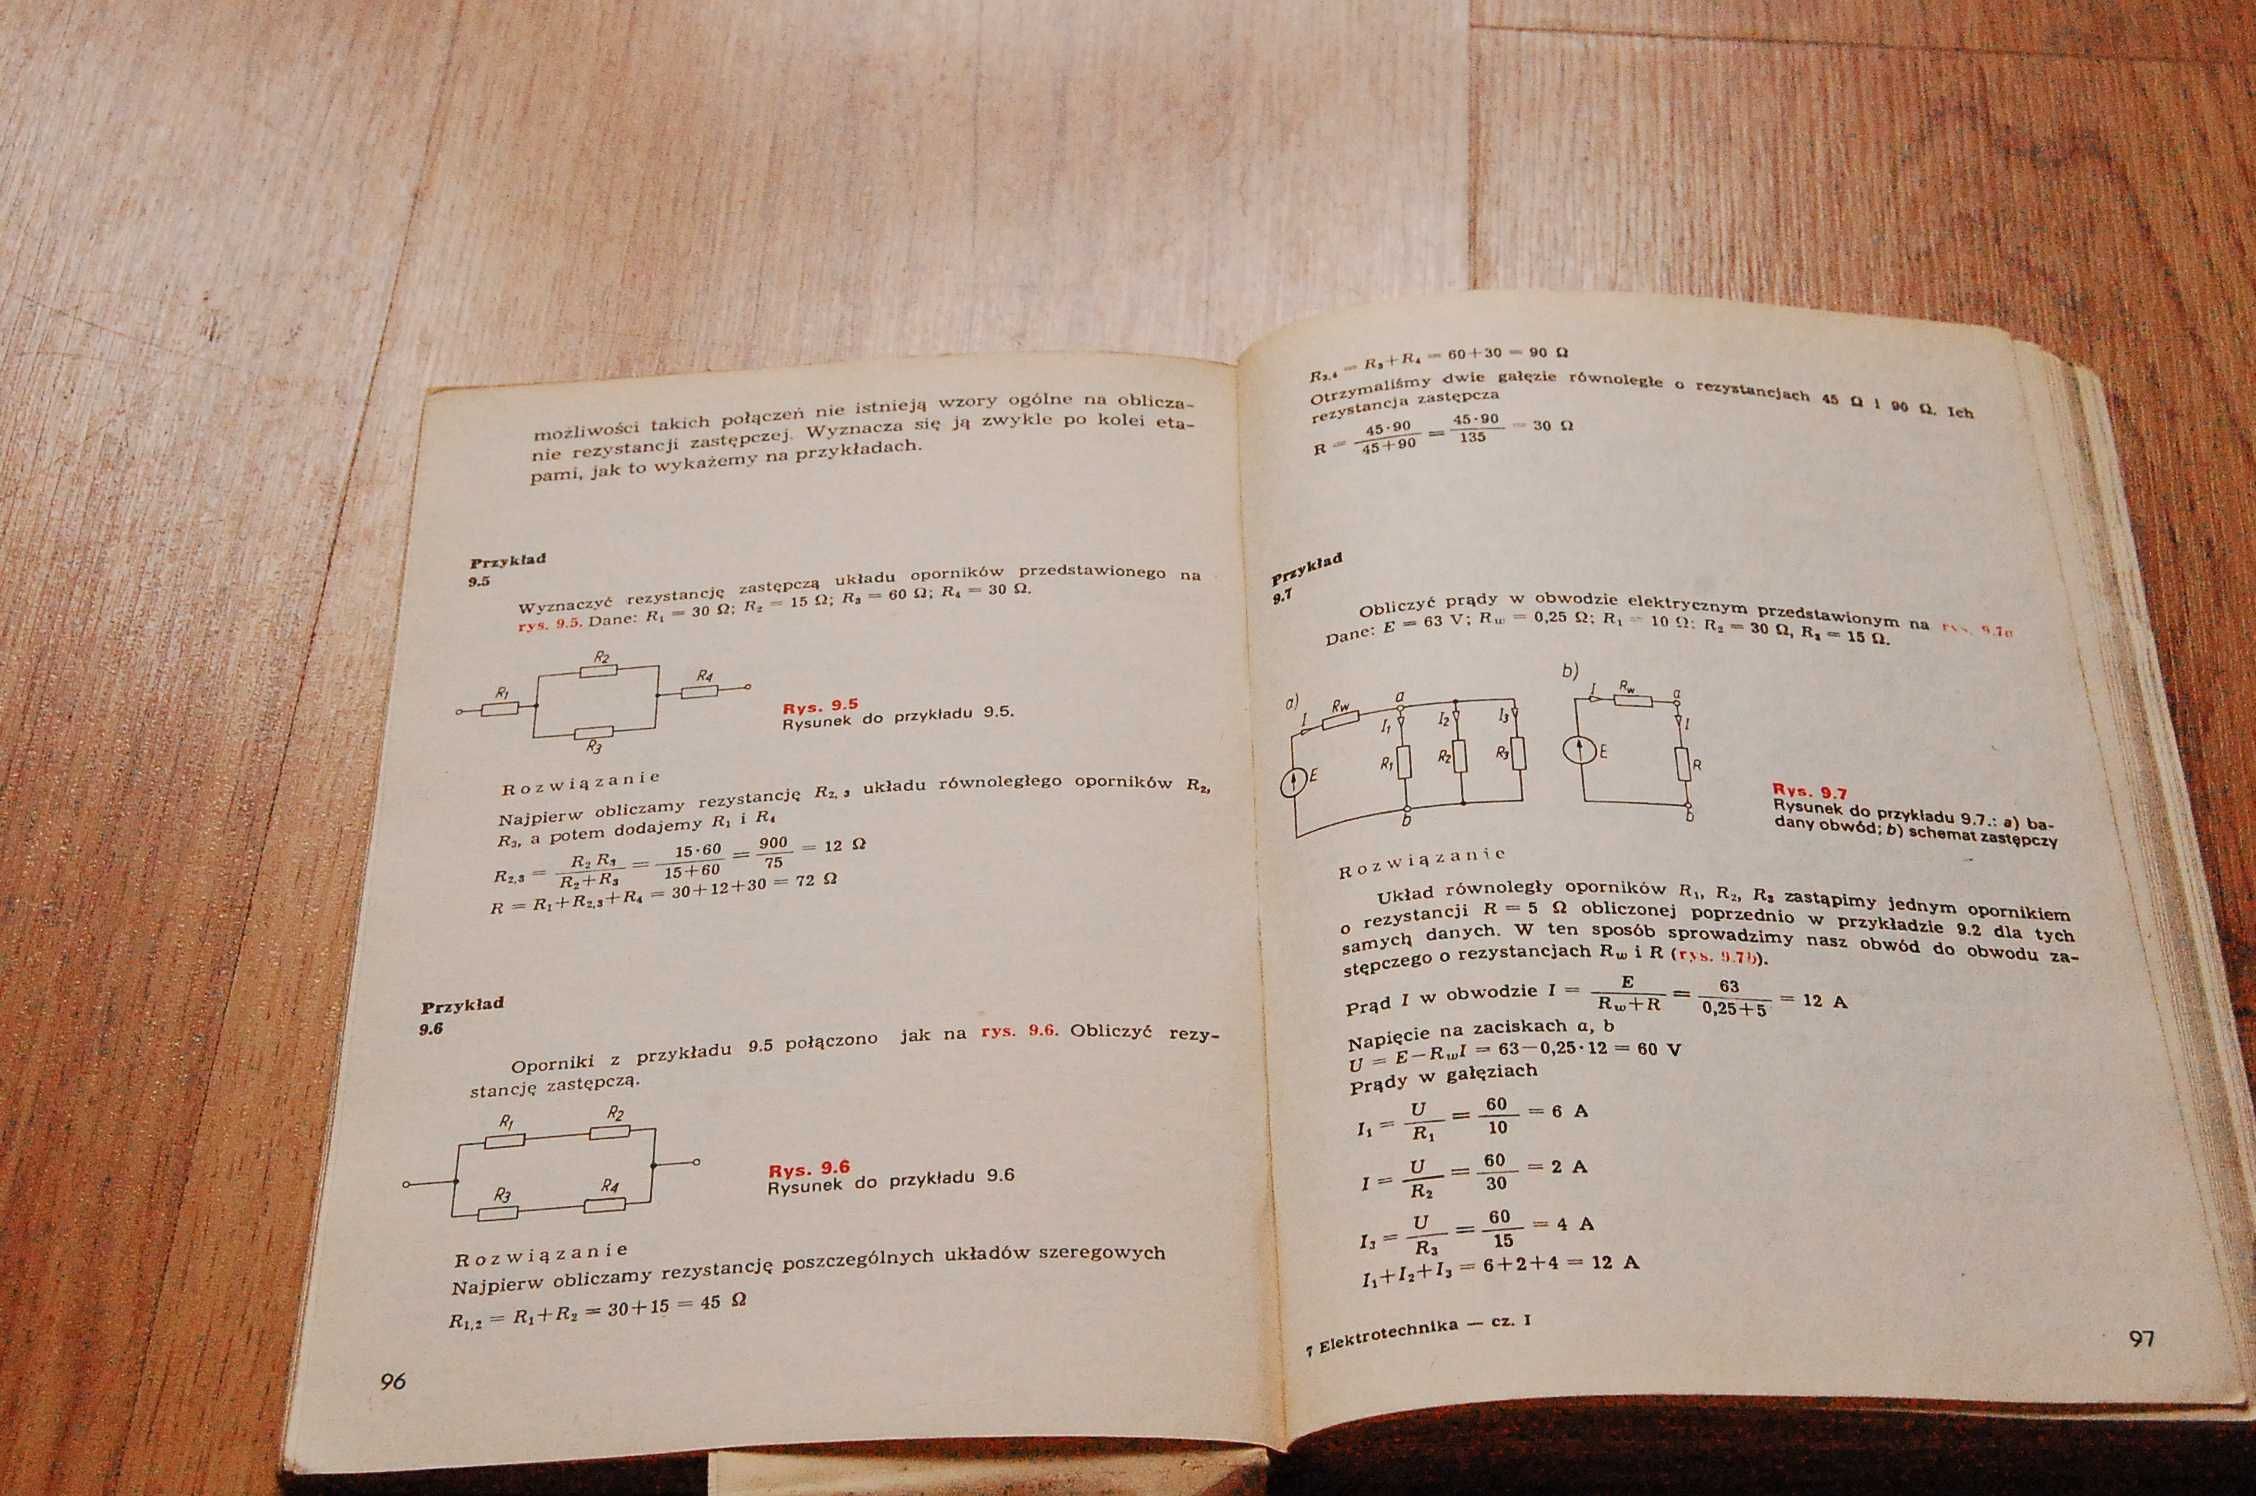 możliwości takich połączeń nie istnieją wzory ogólne na oblicza-
nie rezystancji zastępczej. Wyznacza się ją zwykle po kolei eta-
pami, jak to wykażemy na przykładach.
Przykład
9.5
Wyznaczyć rezystancję zastępczą układu oporników przedstawionego na
rys. 9.5. Dane: R₁ = 30 Ω; R₂ = 15 Ω; R₃ = 60 Ω; R₄ = 30 Ω.
R₂
R₁
R₄
R₃
Rys. 9.5
Rysunek do przykładu 9.5.
Rozwiązanie
Najpierw obliczamy rezystancję R₂,₃ układu równoległego oporników R₂,
R₃, a potem dodajemy R₁ i R₄
R₂,₃ = R₂R₃/(R₂+R₃) = 15·60/(15+60) = 900/75 = 12 Ω
R = R₁+R₂,₃+R₄ = 30+12+30 = 72 Ω
Przykład
9.6
Oporniki z przykładu 9.5 połączono jak na rys. 9.6. Obliczyć rezy-
stancję zastępczą.
R₁ R₂
R₃ R₄
Rys. 9.6
Rysunek do przykładu 9.6
Rozwiązanie
Najpierw obliczamy rezystancję poszczególnych układów szeregowych
R₁,₂ = R₁+R₂ = 30+15 = 45 Ω
96
R₃,₄ = R₃+R₄ = 60+30 = 90 Ω
Otrzymaliśmy dwie gałęzie równoległe o rezystancjach 45 Ω i 90 Ω. Ich
rezystancja zastępcza
R = 45·90/(45+90) = 45·90/135 = 30 Ω
Przykład
9.7
Obliczyć prądy w obwodzie elektrycznym przedstawionym na rys. 9.7a
Dane: E = 63 V; Rw = 0,25 Ω; R₁ = 10 Ω; R₂ = 30 Ω, R₃ = 15 Ω.
a)
I Rw a
I₁ I₂ I₃
E R₁ R₂ R₃
b
b)
I Rw a
I
E R
b
Rys. 9.7
Rysunek do przykładu 9.7.: a) ba-
dany obwód; b) schemat zastępczy
Rozwiązanie
Układ równoległy oporników R₁, R₂, R₃ zastąpimy jednym opornikiem
o rezystancji R = 5 Ω obliczonej poprzednio w przykładzie 9.2 dla tych
samych danych. W ten sposób sprowadzimy nasz obwód do obwodu za-
stępczego o rezystancjach Rw i R (rys. 9.7b).
Prąd I w obwodzie I = E/(Rw+R) = 63/(0,25+5) = 12 A
Napięcie na zaciskach a, b
U = E−RwI = 63−0,25·12 = 60 V
Prądy w gałęziach
I₁ = U/R₁ = 60/10 = 6 A
I = U/R₂ = 60/30 = 2 A
I₃ = U/R₃ = 60/15 = 4 A
I₁+I₂+I₃ = 6+2+4 = 12 A
7 Elektrotechnika — cz. I
97